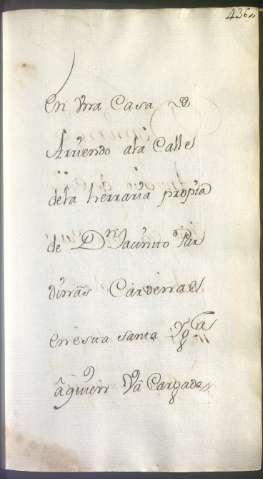 436
en Vna Casa
Arriendo a la Calle
de la herraria propia
de Dn Jacinto
Cardenas
en esta santa Yga
â quien Vâ Cargado